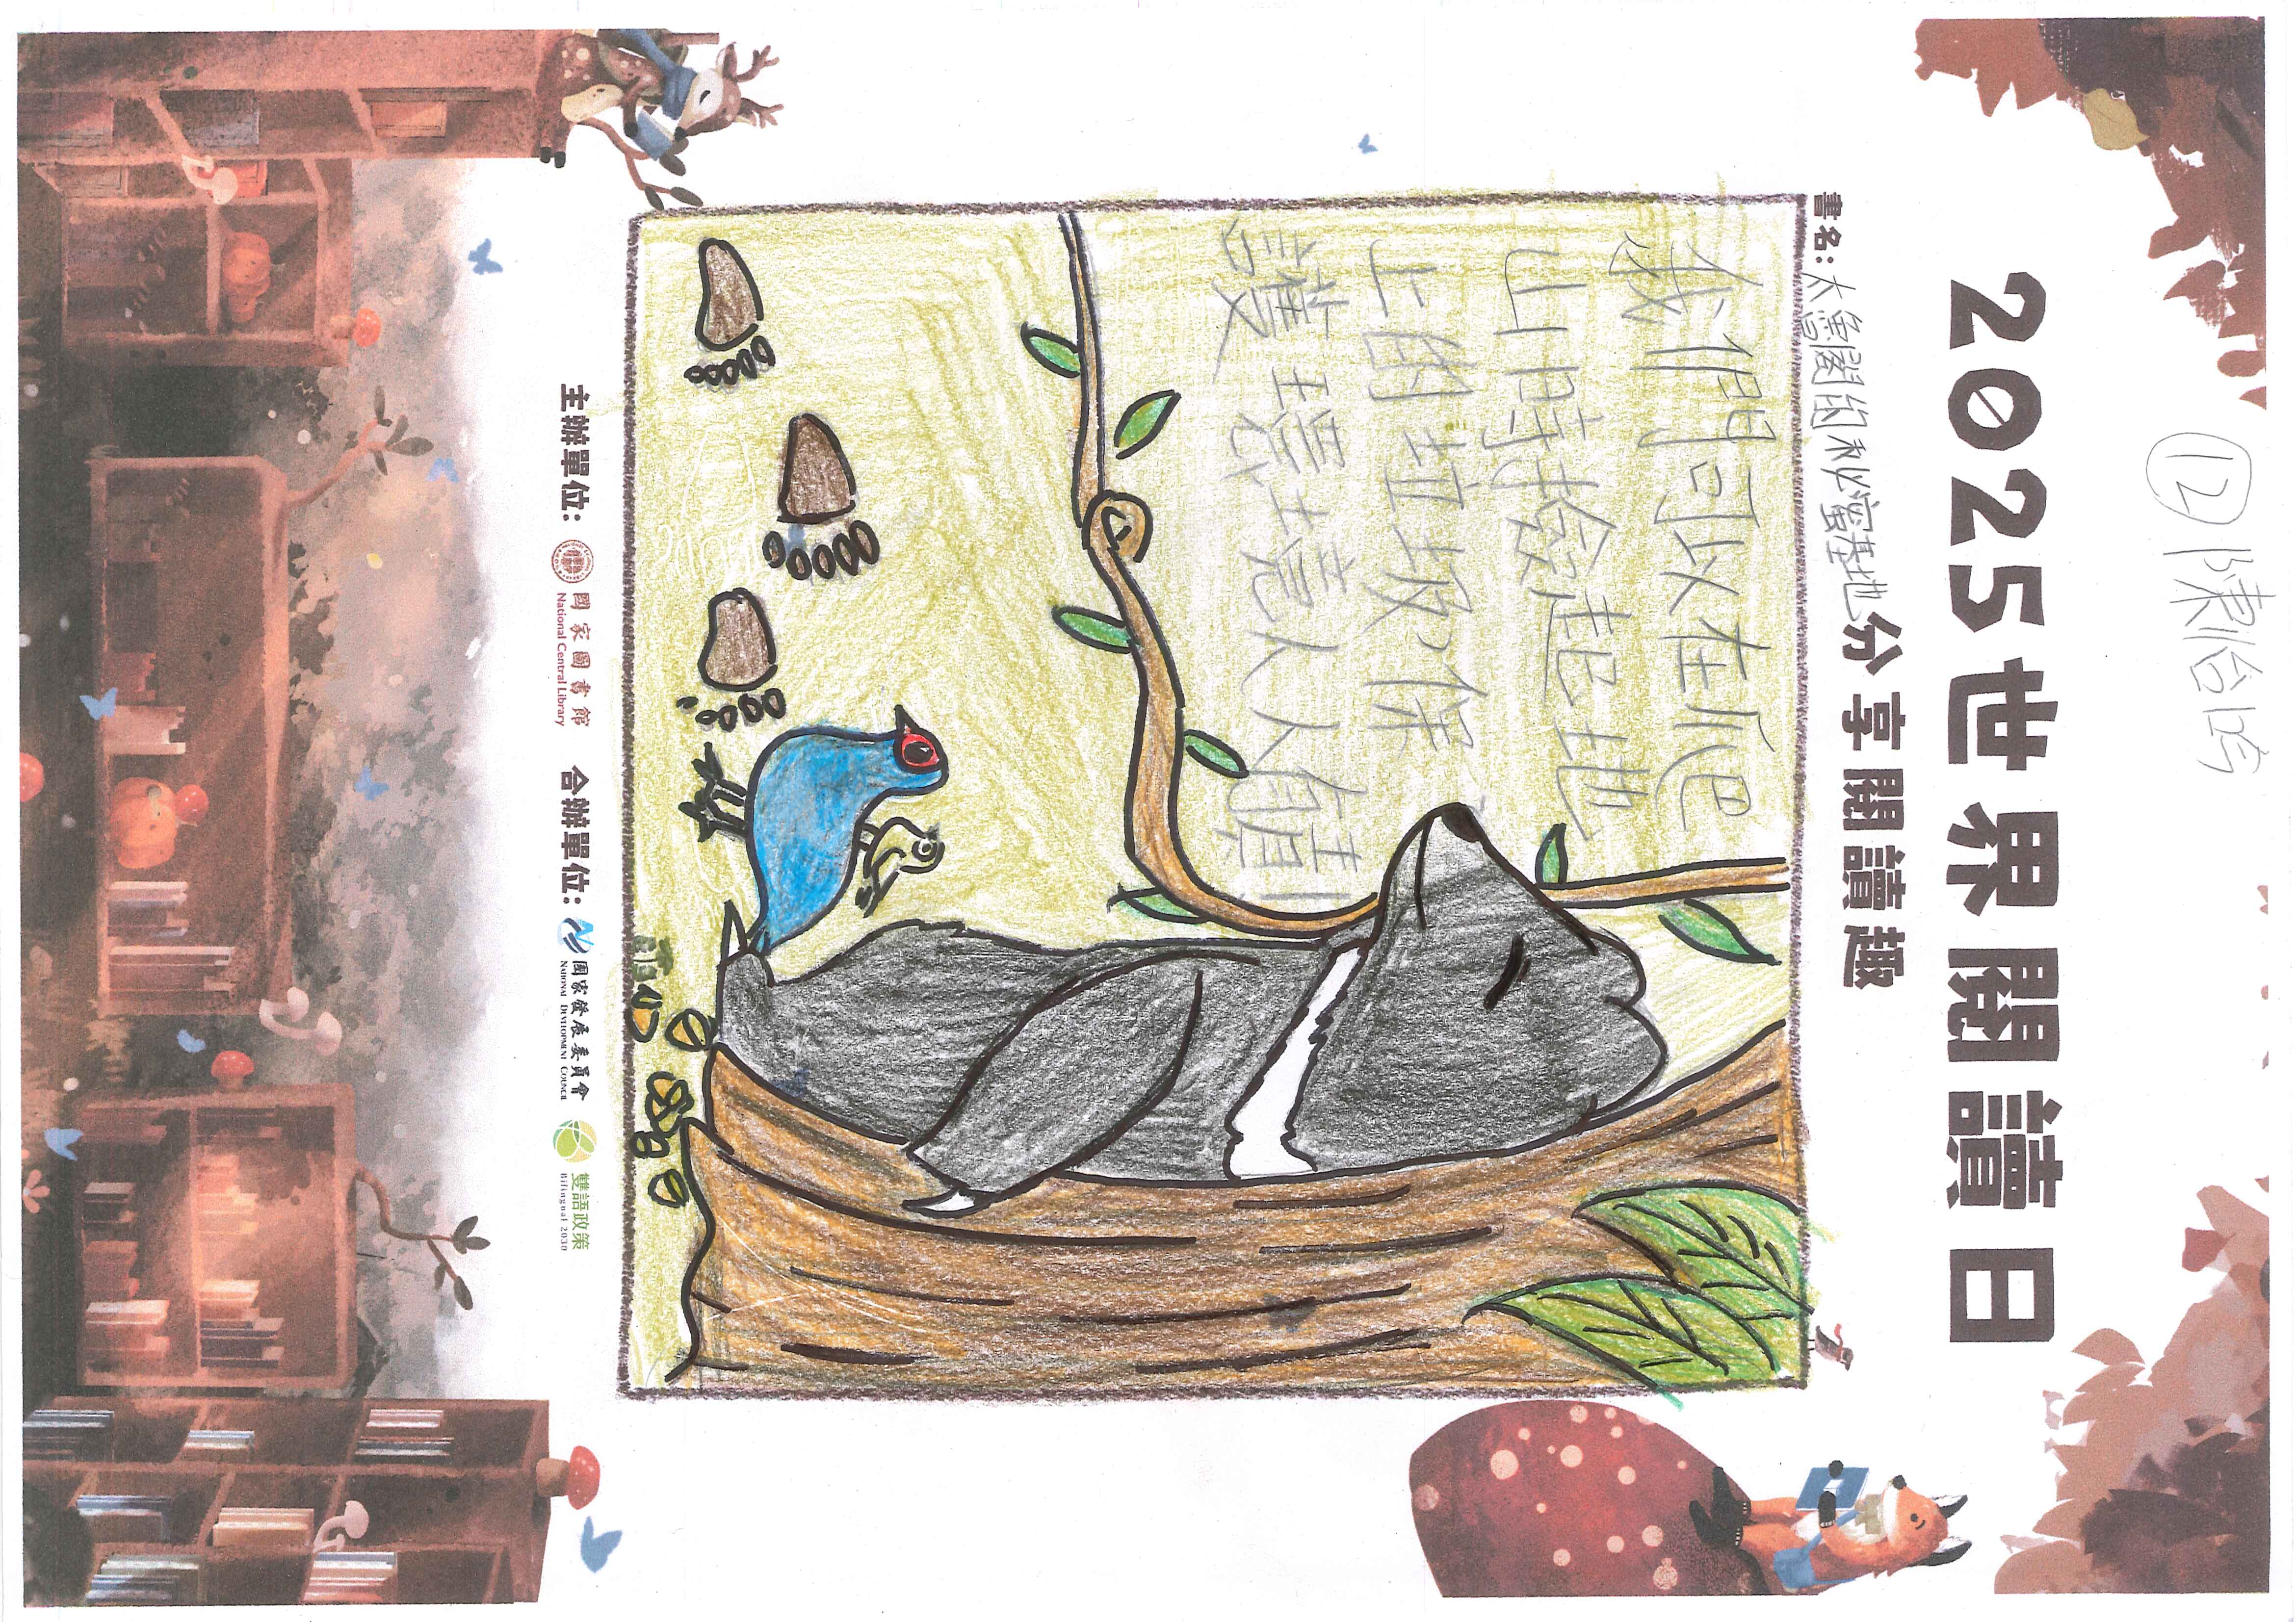 ⑫陳
2025世界閱讀日
分享閱讀趣
書名：太魯閣的秘密基地
我們可以在爬
山時撿起地
上的垃圾，保
護環境人人有
責
主辦單位：
國家圖書館
National Central Library
合辦單位：
國家發展委員會
National Development Council
雙語政策
Bilingual 2030